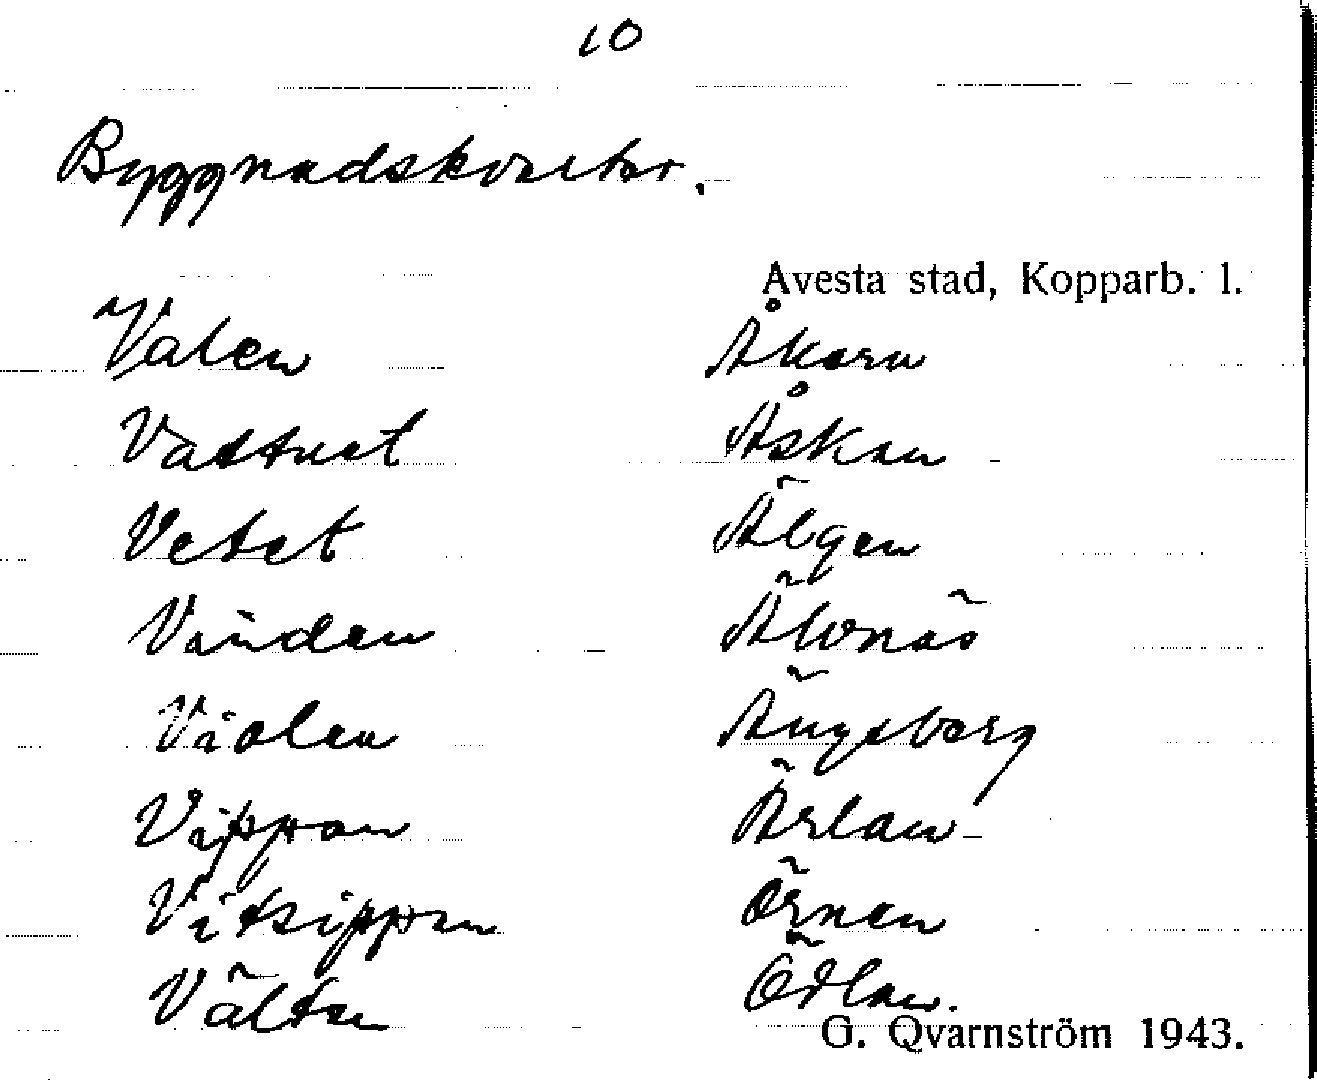 10
Byggnadskvarter.
Avesta stad, Kopparb. l.
Valen
Vattnet
Vetet
Vinden
Violen
Vippan
Vitsippan
Välten
Åkern
Åskan
Älgen
Älvnäs
Ängsberg
Ärlan
Örnen
Ödlan.
G. Qvarnström 1943.